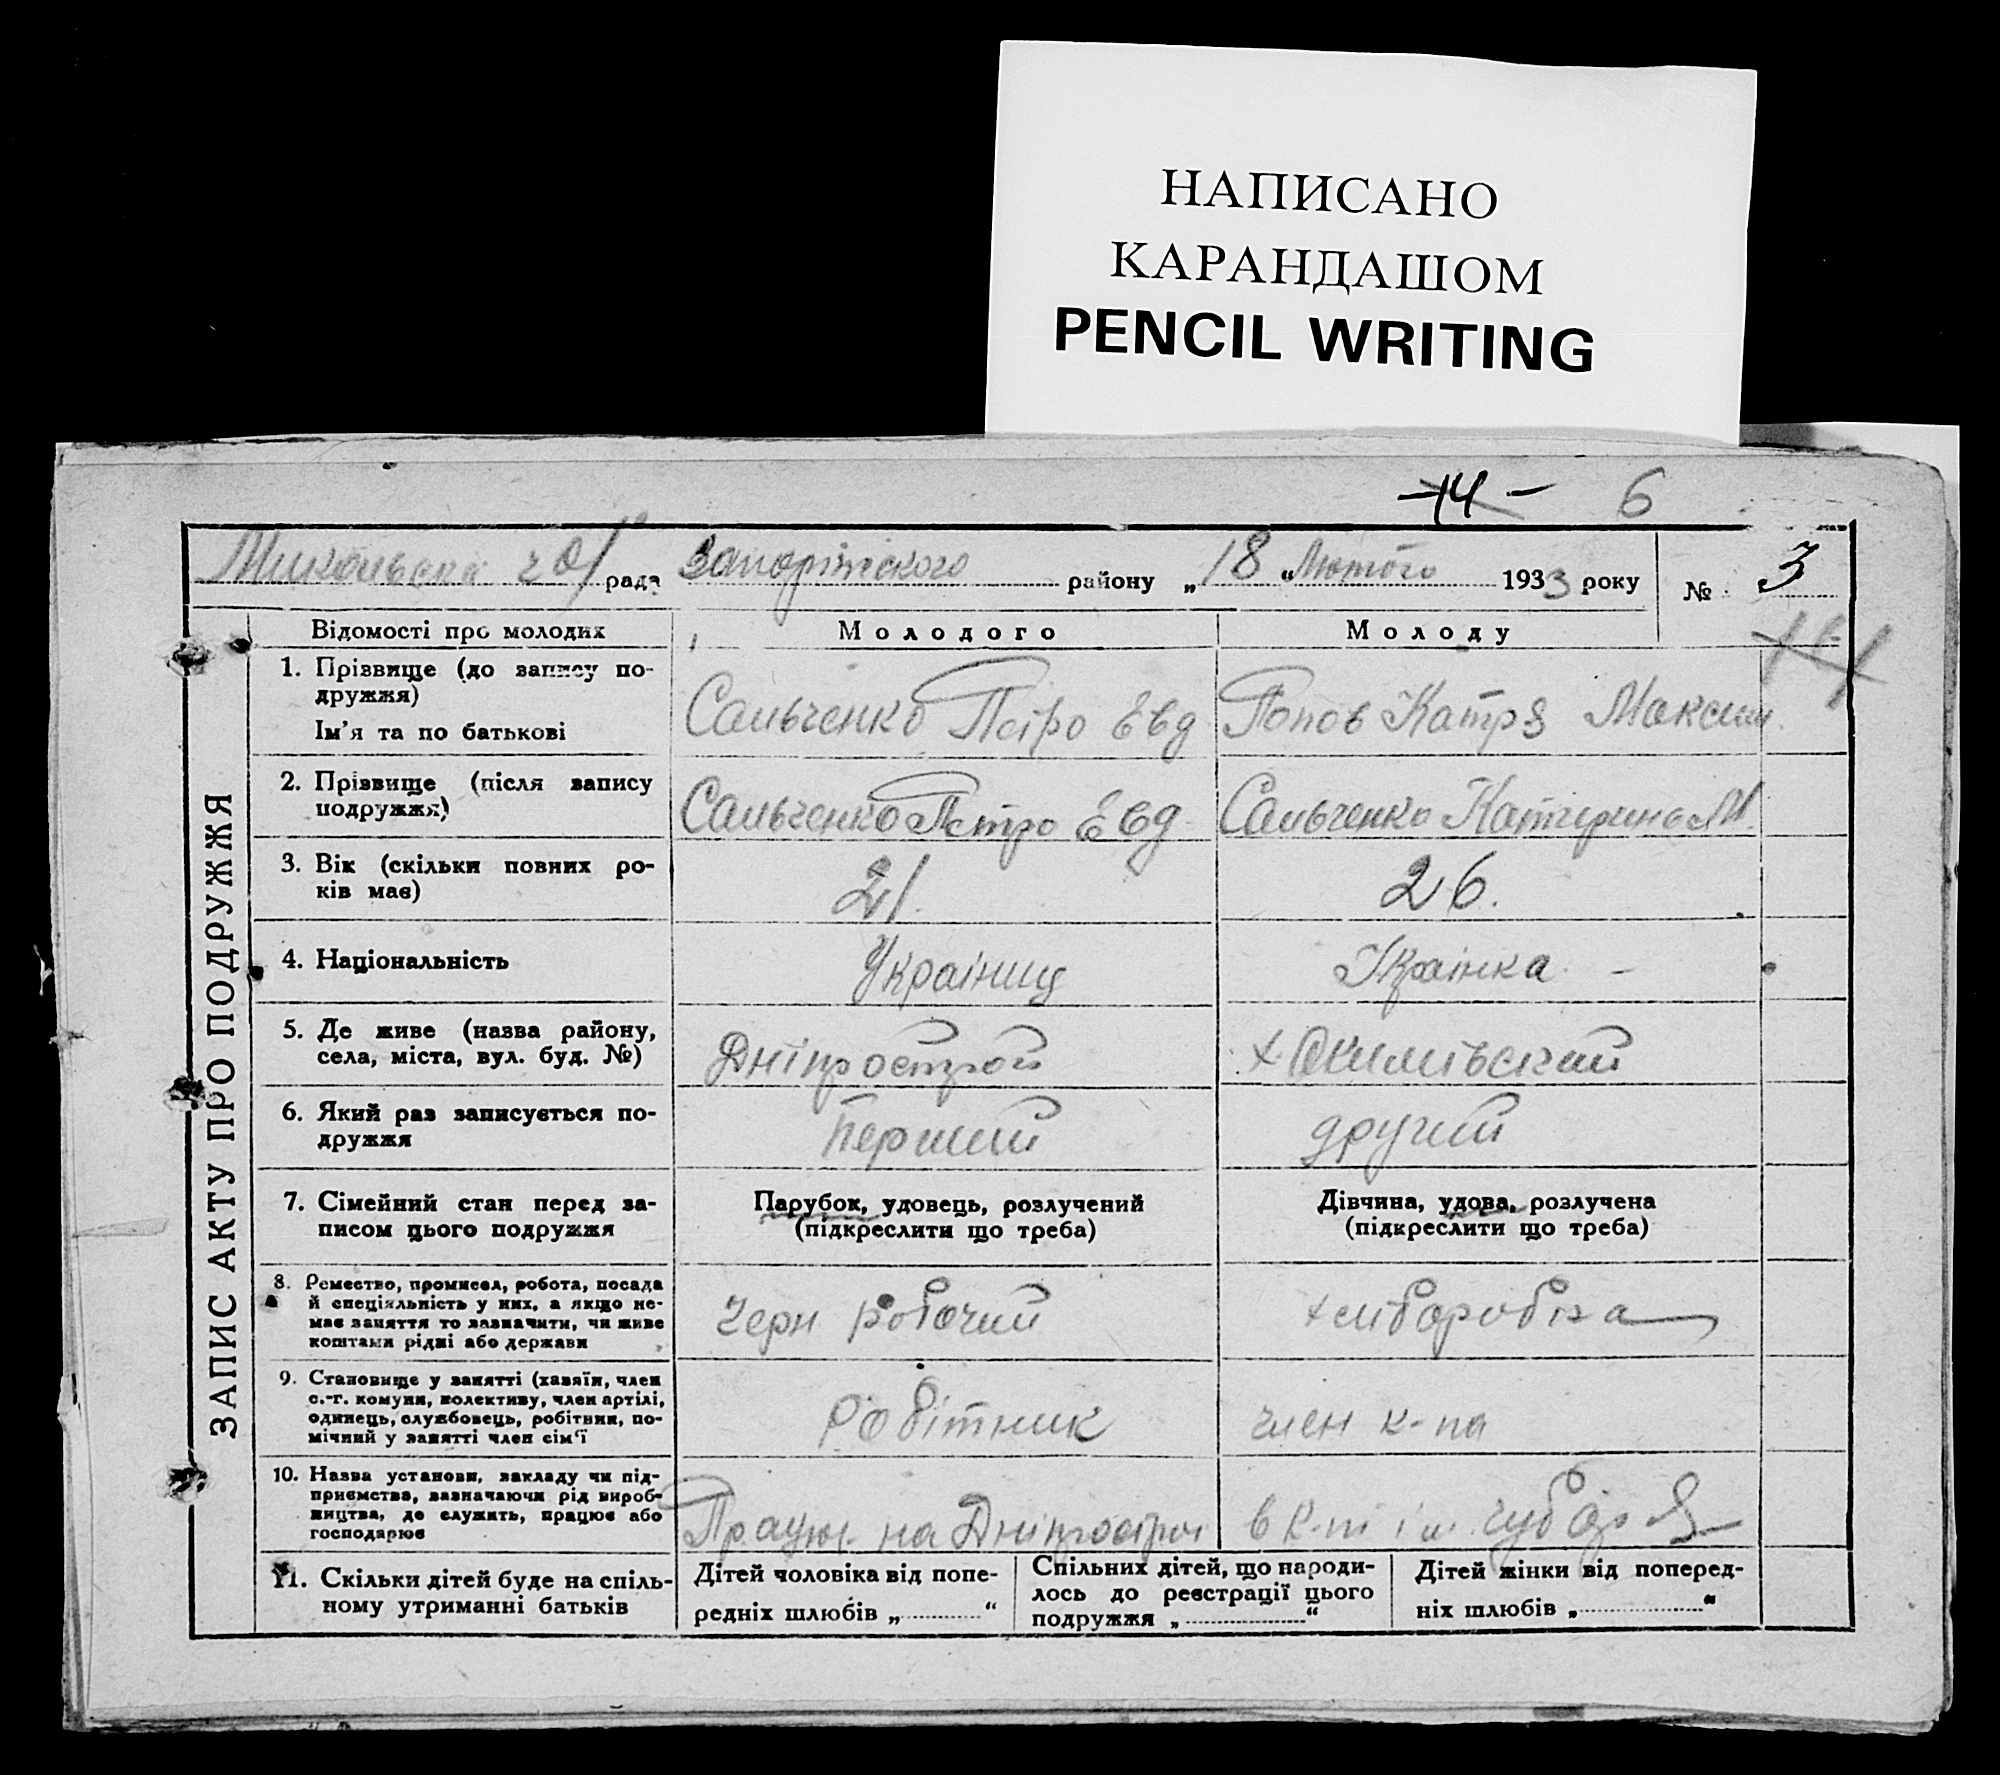 НАПИСАНО
КАРАНДАШОМ
PENCIL WRITING
-14- 6
Микольська рада Запоріжського району „18“ Лютого 1933 року № 3
ЗАПИС АКТУ ПРО ПОДРУЖЖЯ
Відомості про молодих Молодого Молоду
1. Прізвище (до запису по-
дружжя)
Ім'я та по батькові
Сальченко Петро Евд
Попов Катря Максим.
2. Прізвище (після запису
подружжя)
Сальченко Петро Евд
Сальченко Катерина М.
3. Вік (скільки повних ро-
ків має)
21.
26.
4. Національність
Украіниц
Украінка -
5. Де живе (назва району,
села, міста, вул. буд. №)
Дніпрострой
х.
6. Який раз записується по-
дружжя
Перший
другий
7. Сімейний стан перед за-
писом цього подружжя
Парубок, удовець, розлучений
(підкреслити що треба)
Дівчина, удова, розлучена
(підкреслити що треба)
8. Ремество, промисел, робота, посада
й спеціяльність у них, а якщо не-
має заняття то зазначити, чи живе
коштами рідні або держави
черн робочий
хліборобка
9. Становище у занятті (хазяїн, член
с.-г. комуни, колективу, член артілі,
одинець, службовець, робітник, по-
мічний у занятті член сім'ї
Робітник
член к-па
10. Назва установи, закладу чи під-
приємства, зазначаючи рід вироб-
ництва, де служить, працює або
господарює
на Дніпрострої
в к-пі ім. Чубаря
11. Скільки дітей буде на спіль-
ному утриманні батьків
Дітей чоловіка від попе-
редніх шлюбів „ “
Спільних дітей, що народи-
лось до реєстрації цього
подружжя „ “
Дітей жінки від поперед-
ніх шлюбів „ “